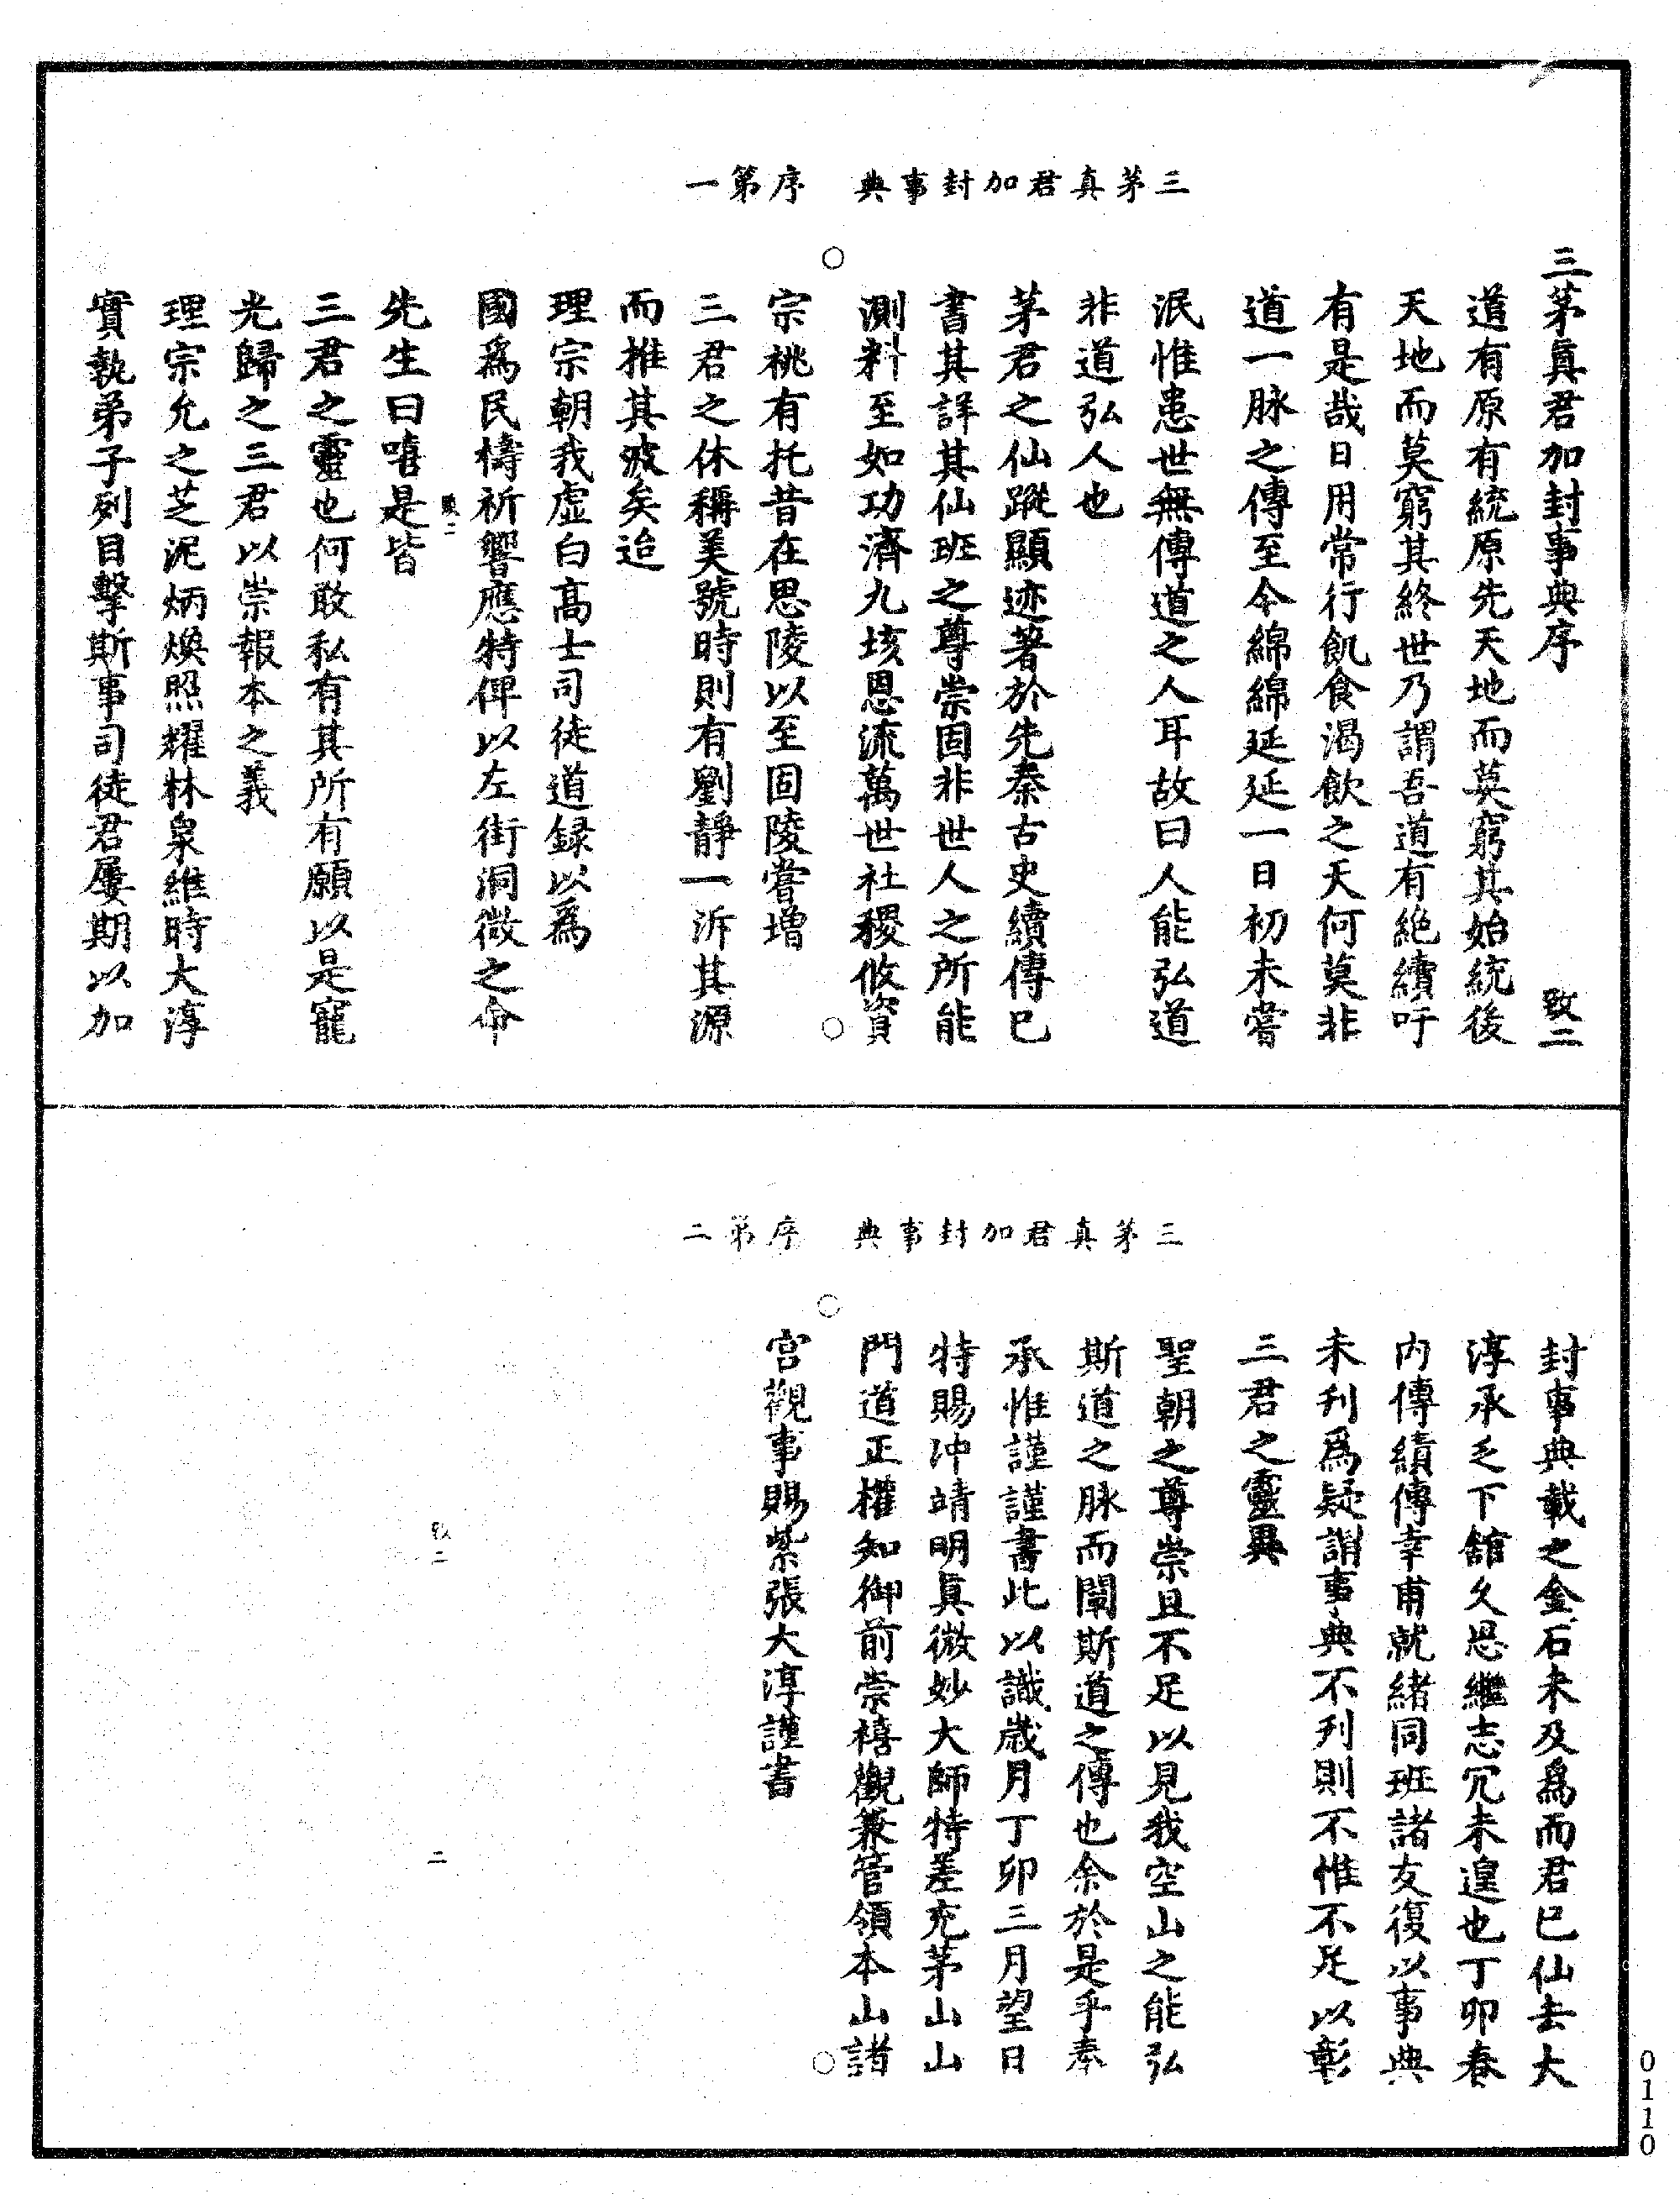 三茅真君加封事典　序第一
三茅眞君加封事典序　致二
道有原有統原先天地而莫窮其始統後
天地而莫窮其終世乃謂吾道有絶續吁
有是哉日用常行飢食渴飲之天何莫非
道一脉之傳至今綿綿延延一日初未嘗
泯惟患世無傳道之人耳故曰人能弘道
非道弘人也
茅君之仙蹤顯迹著於先秦古史續傳已
書其詳其仙班之尊崇固非世人之所能
測料至如功濟九垓恩流萬世社稷攸資
宗祧有托昔在思陵以至固陵嘗增
三君之休稱美號時則有劉靜一泝其源
而推其波矣迨
理宗朝我虛白高士司徒道録以爲
國爲民禱祈響應特俾以左街洞微之命
致二
先生曰嘻是皆
三君之靈也何敢私有其所有願以是寵
光歸之三君以崇報本之義
理宗允之芝泥炳煥照耀林泉維時大淳
實執弟子列目擊斯事司徒君屢期以加
三茅真君加封事典　序第二
封事典載之金石未及爲而君已仙去大
淳承乏下舘久思繼志冗未遑也丁卯春
内傳績傳幸甫就緒同班諸友復以事典
未刊爲疑謂事典不列則不惟不足以彰
三君之靈異
聖朝之尊崇且不足以見我空山之能弘
斯道之脉而闡斯道之傳也余於是乎奉
承惟謹謹書此以識歲月丁卯三月望日
特賜沖靖明眞微妙大師特差充茅山山
門道正權知御前崇禧觀兼管領本山諸
宫觀事賜紫張大淳謹書
致二
二
0110